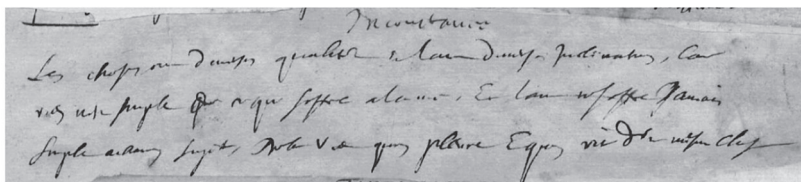 Inconstance
Les choses ont diverses qualités et l'ame diverses inclinations, Car
rien n'est simple de ce qui s'offre a l'ame, Et l'ame ne s'offre Jamais
simple a aucun sujet, De la vient qu'on pleure Et qu'on rit d'une mesme chose